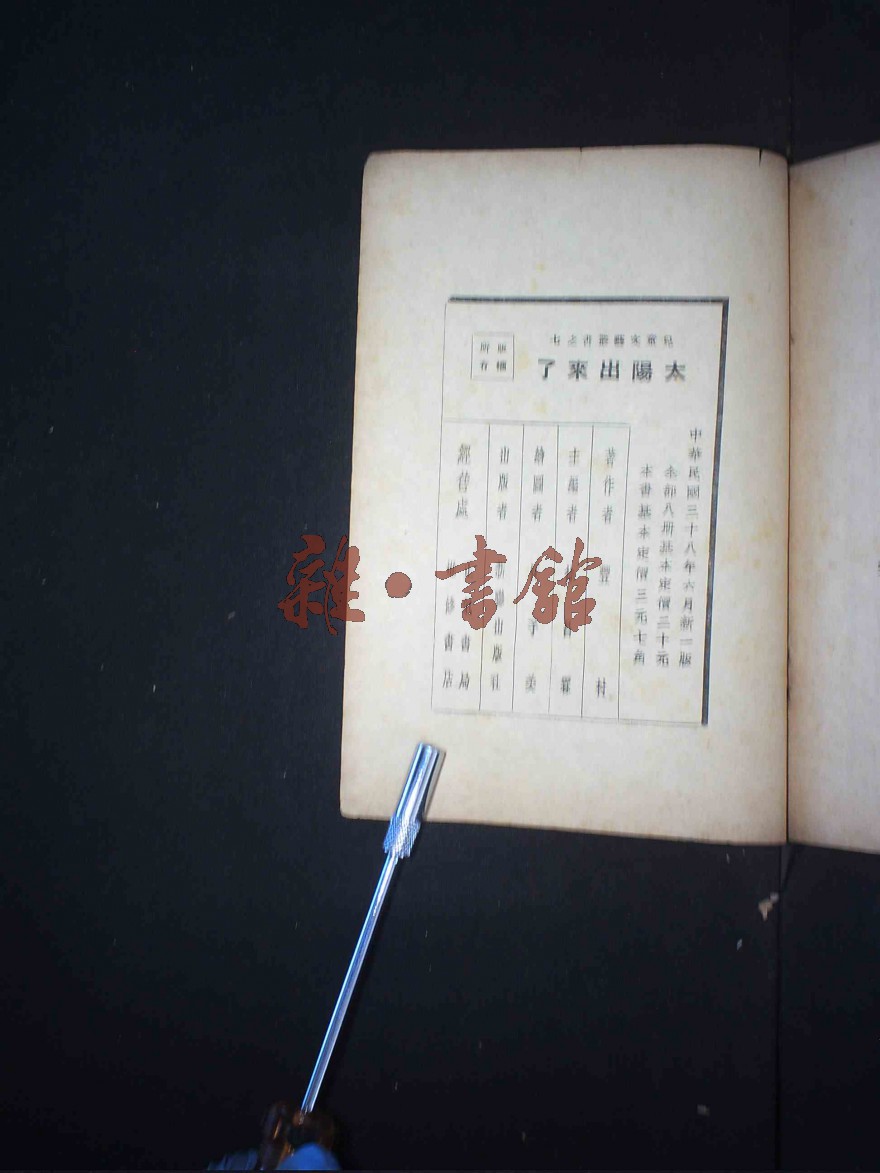 兒童文藝叢書之七
太陽出來了
版權
所有
中華民國三十八年六月新一版
全部八冊基本定價三十元
本書基本定價三元七角
著作者 豐村
主編者
繪圖者
出版者 出版社
經售處 書局
書店
雜·書館